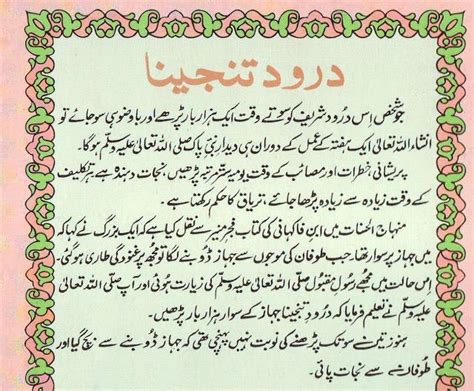 درود تنجینا
جو شخص اِس دُرود شریف کو سوتے وقت ایک ہزار بار پڑھے اور با وضو ہی سو جائے تو
انشاء اللہ تعالیٰ ایک ہفتہ کے عمل کے دوران ہی دیدارِ نبیِ پاک صلی اللہ تعالیٰ علیہ وسلّم ہوگا۔
پریشانی خطرات اور مصائب کے وقت یومیہ ستر مرتبہ پڑھیں، نجات دہندہ ہے ہر تکلیف
کے وقت زیادہ سے زیادہ پڑھا جائے، تریاق کا حکم رکھتا ہے۔
منہاج الحسنات میں ابنِ فاکہانی کی کتاب فجرِ منیر سے نقل کیا ہے کہ ایک بزرگ نے کہا کہ
میں جہاز پر سوار تھا۔ جب طوفان کی موجوں سے جہاز ڈوبنے لگا تو مجھ پر غنودگی طاری ہو گئی۔
اِس حالت میں مجھے رسولِ مقبول صلی اللہ تعالیٰ علیہ وسلّم کی زیارت ہوئی اور آپ صلی اللہ تعالیٰ
علیہ وسلّم نے تعلیم فرمایا کہ درودِ تنجینا جہاز کے سوار ہزار بار پڑھیں۔
ہنوز تین سو تک پڑھنے کی نوبت نہیں پہنچی تھی کہ جہاز ڈوبنے سے بچ گیا اور
طوفان سے نجات پائی۔